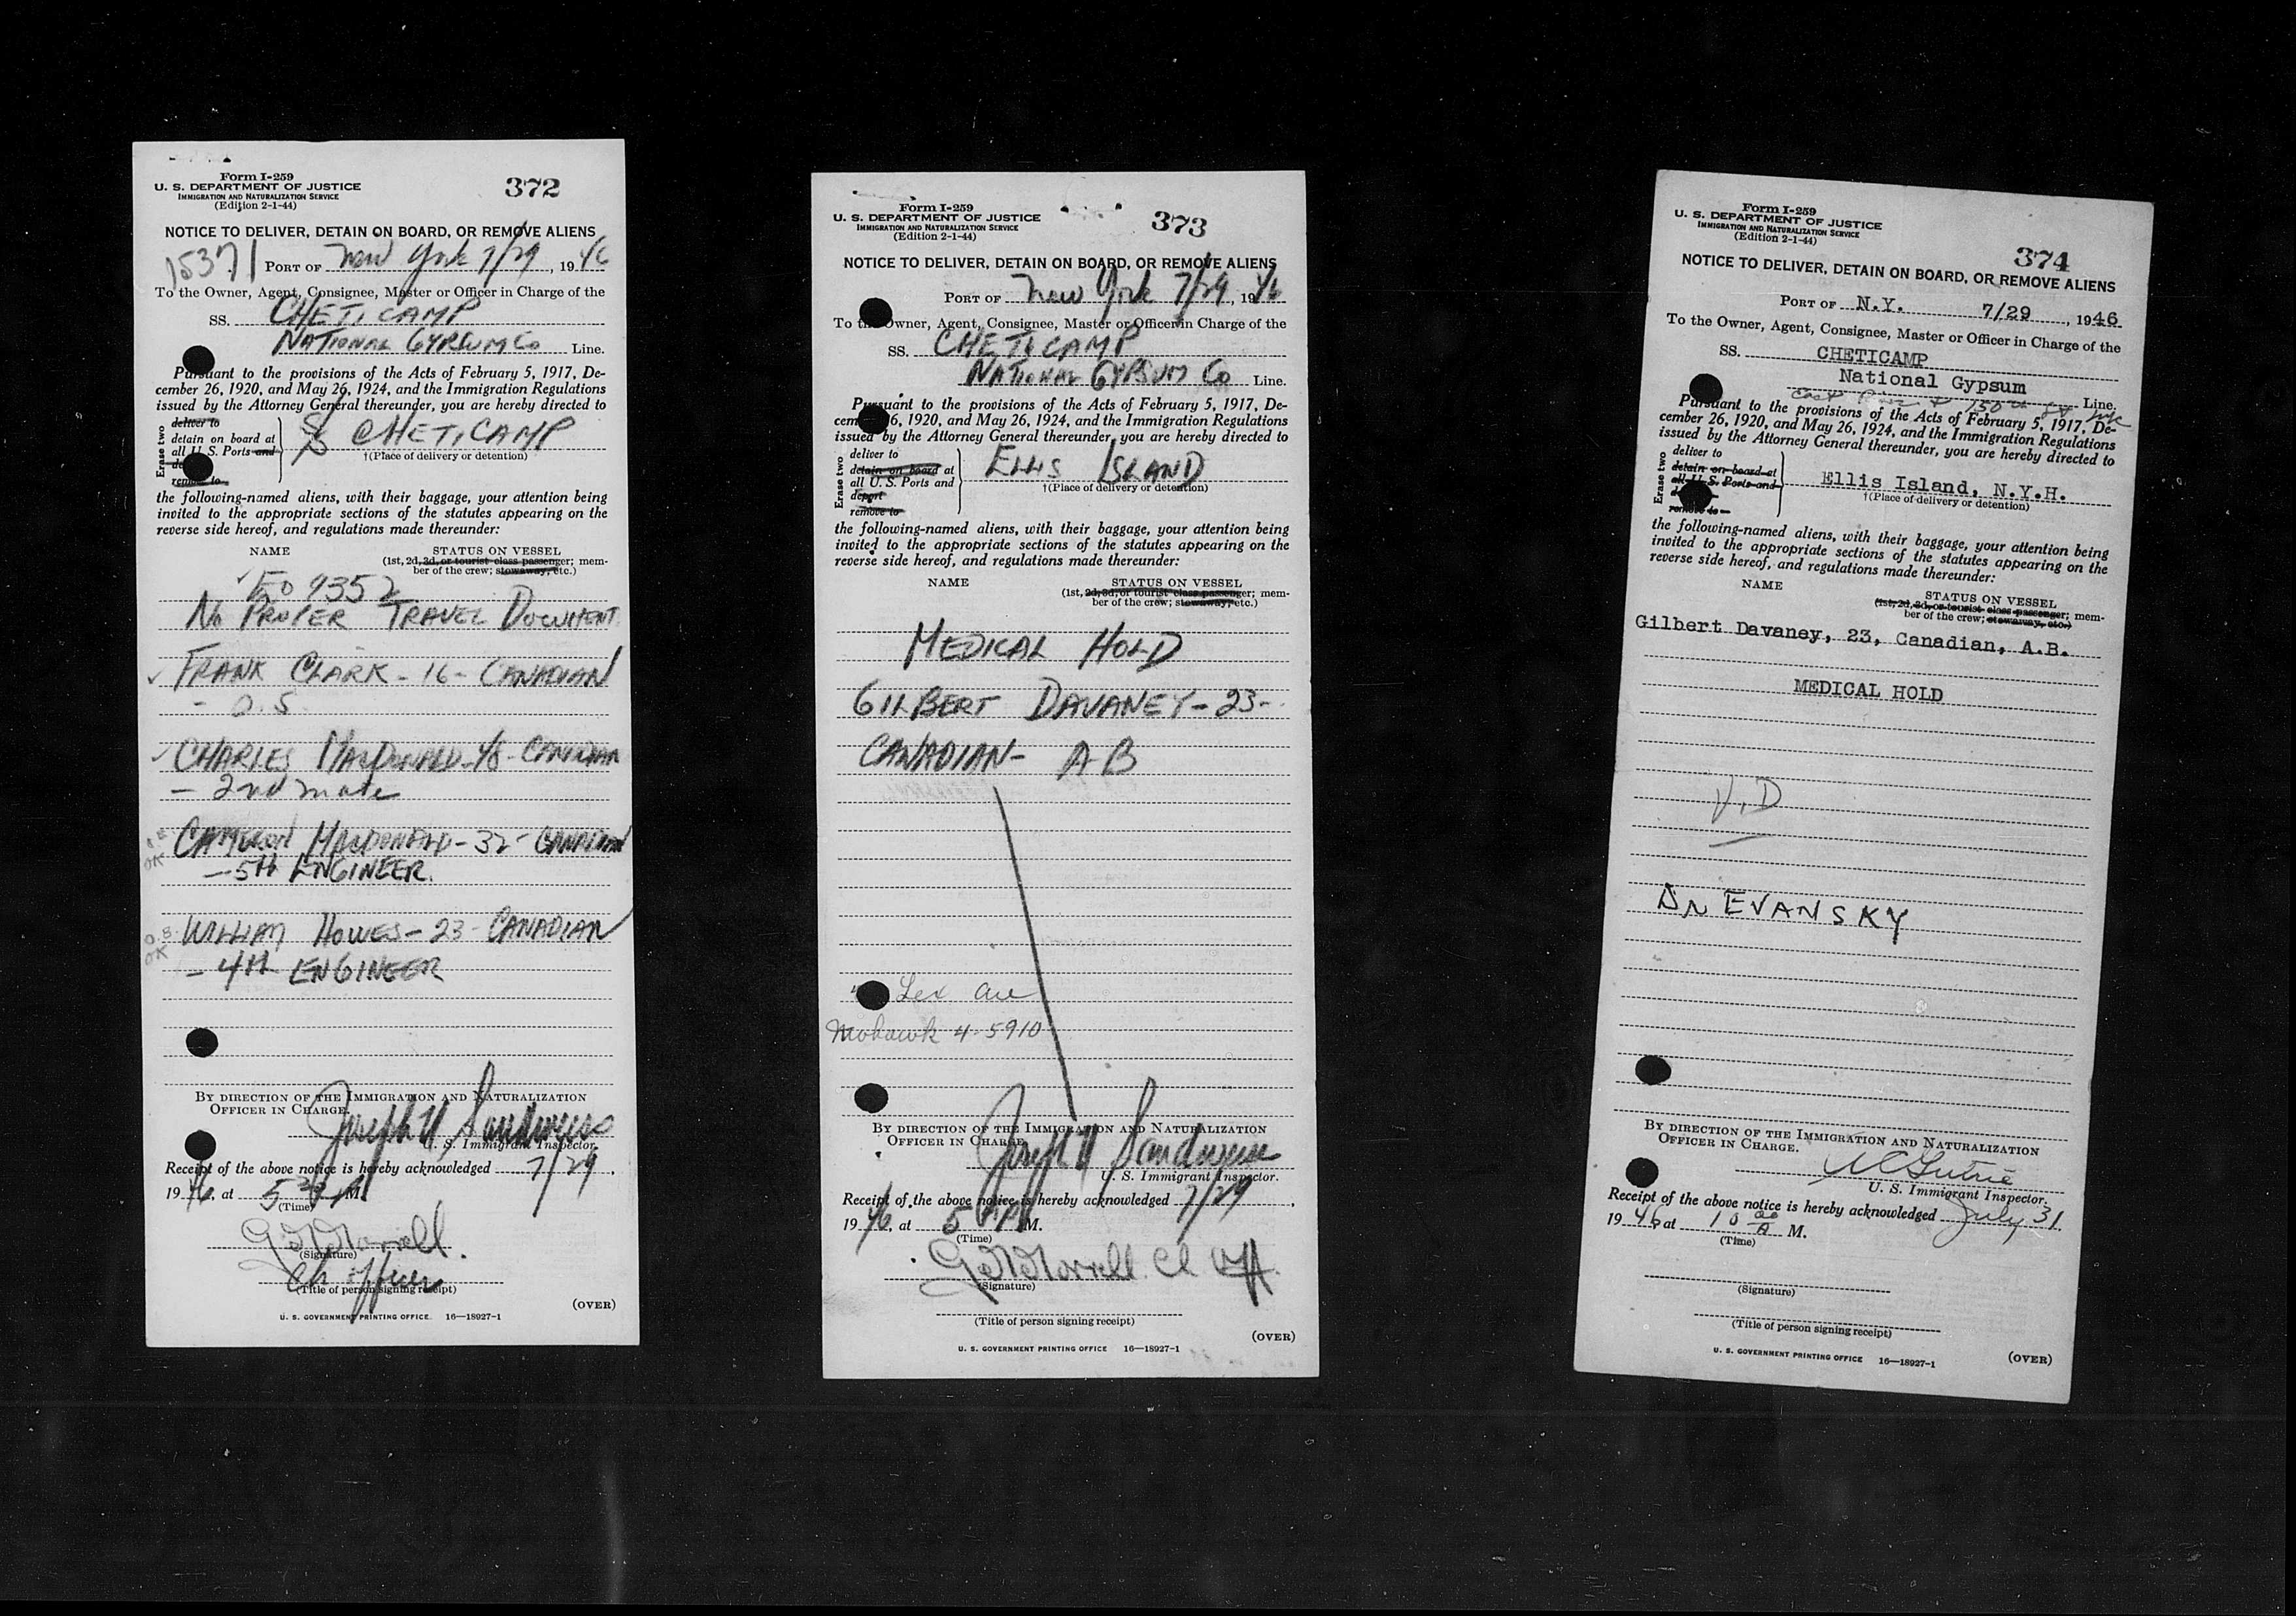 Form I-259
U. S. DEPARTMENT OF JUSTICE
IMMIGRATION AND NATURALIZATION SERVICE
(Edition 2-1-44)
372
NOTICE TO DELIVER, DETAIN ON BOARD, OR REMOVE ALIENS
15371
PORT OF New York 7/29, 1946
To the Owner, Agent, Consignee, Master or Officer in Charge of the
SS. CHETICAMP
NATIONAL GYPSUM CO Line.
Pursuant to the provisions of the Acts of February 5, 1917, De-
cember 26, 1920, and May 26, 1924, and the Immigration Regulations
issued by the Attorney General thereunder, you are hereby directed to
Erase two
deliver to
detain on board at
all U. S. Ports and
remove to
SS CHETICAMP
†(Place of delivery or detention)
the following-named aliens, with their baggage, your attention being
invited to the appropriate sections of the statutes appearing on the
reverse side hereof, and regulations made thereunder:
NAME STATUS ON VESSEL
(1st, 2d, 3d, or tourist class passenger; mem-
ber of the crew; stowaway, etc.)
EO 9352
NO PROPER TRAVEL DOCUMENT
FRANK CLARK - 16 - CANADIAN
- O.S.
CHARLES MACDONALD - 48 - CANADIAN
- 2nd mate
CAMERON MACDONALD - 32 - CANADIAN
- 5th ENGINEER.
OK
WILLIAM HOWES - 23 - CANADIAN
- 4th ENGINEER
OK
BY DIRECTION OF THE IMMIGRATION AND NATURALIZATION
OFFICER IN CHARGE.
Joseph
U. S. Immigrant Inspector.
Receipt of the above notice is hereby acknowledged 7/29,
1946, at 5 M.
(Time)
G Morrell.
(Signature)
Ch officer
(Title of person signing receipt)
(OVER)
U. S. GOVERNMENT PRINTING OFFICE 16—18927-1
Form I-259
U. S. DEPARTMENT OF JUSTICE
IMMIGRATION AND NATURALIZATION SERVICE
(Edition 2-1-44)
373
NOTICE TO DELIVER, DETAIN ON BOARD, OR REMOVE ALIENS
PORT OF New York 7/29, 1946
To the Owner, Agent, Consignee, Master or Officer in Charge of the
SS. CHETICAMP
NATIONAL GYPSUM CO Line.
Pursuant to the provisions of the Acts of February 5, 1917, De-
cember 26, 1920, and May 26, 1924, and the Immigration Regulations
issued by the Attorney General thereunder, you are hereby directed to
Erase two
deliver to
detain on board at
all U. S. Ports and
deport
remove to
ELLIS ISLAND
†(Place of delivery or detention)
the following-named aliens, with their baggage, your attention being
invited to the appropriate sections of the statutes appearing on the
reverse side hereof, and regulations made thereunder:
NAME STATUS ON VESSEL
(1st, 2d, 3d, or tourist class passenger; mem-
ber of the crew; stowaway, etc.)
MEDICAL HOLD
GILBERT DAVANEY - 23 -
CANADIAN - AB
Lex Ave
Mohawk 4-5910
BY DIRECTION OF THE IMMIGRATION AND NATURALIZATION
OFFICER IN CHARGE.
Joseph
U. S. Immigrant Inspector.
Receipt of the above notice is hereby acknowledged 7/29,
1946, at 5 PM.
(Time)
G Morrell. Ch Off.
(Signature)
(Title of person signing receipt)
(OVER)
U. S. GOVERNMENT PRINTING OFFICE 16—18927-1
Form I-259
U. S. DEPARTMENT OF JUSTICE
IMMIGRATION AND NATURALIZATION SERVICE
(Edition 2-1-44)
374
NOTICE TO DELIVER, DETAIN ON BOARD, OR REMOVE ALIENS
PORT OF N.Y. 7/29, 1946
To the Owner, Agent, Consignee, Master or Officer in Charge of the
SS. CHETICAMP
National Gypsum Line.
East 150th St
Pursuant to the provisions of the Acts of February 5, 1917, De-
cember 26, 1920, and May 26, 1924, and the Immigration Regulations
issued by the Attorney General thereunder, you are hereby directed to
Erase two
deliver to
detain on board at
all U. S. Ports and
remove to
Ellis Island, N.Y.H.
†(Place of delivery or detention)
the following-named aliens, with their baggage, your attention being
invited to the appropriate sections of the statutes appearing on the
reverse side hereof, and regulations made thereunder:
NAME STATUS ON VESSEL
(1st, 2d, 3d, or tourist class passenger; mem-
ber of the crew; stowaway, etc.)
Gilbert Davaney, 23, Canadian, A.B.
MEDICAL HOLD
V.D
DR EVANSKY
BY DIRECTION OF THE IMMIGRATION AND NATURALIZATION
OFFICER IN CHARGE.
U. S. Immigrant Inspector.
Receipt of the above notice is hereby acknowledged July 31,
1946 at 10 00 A M.
(Time)
(Signature)
(Title of person signing receipt)
(OVER)
U. S. GOVERNMENT PRINTING OFFICE 16—18927-1